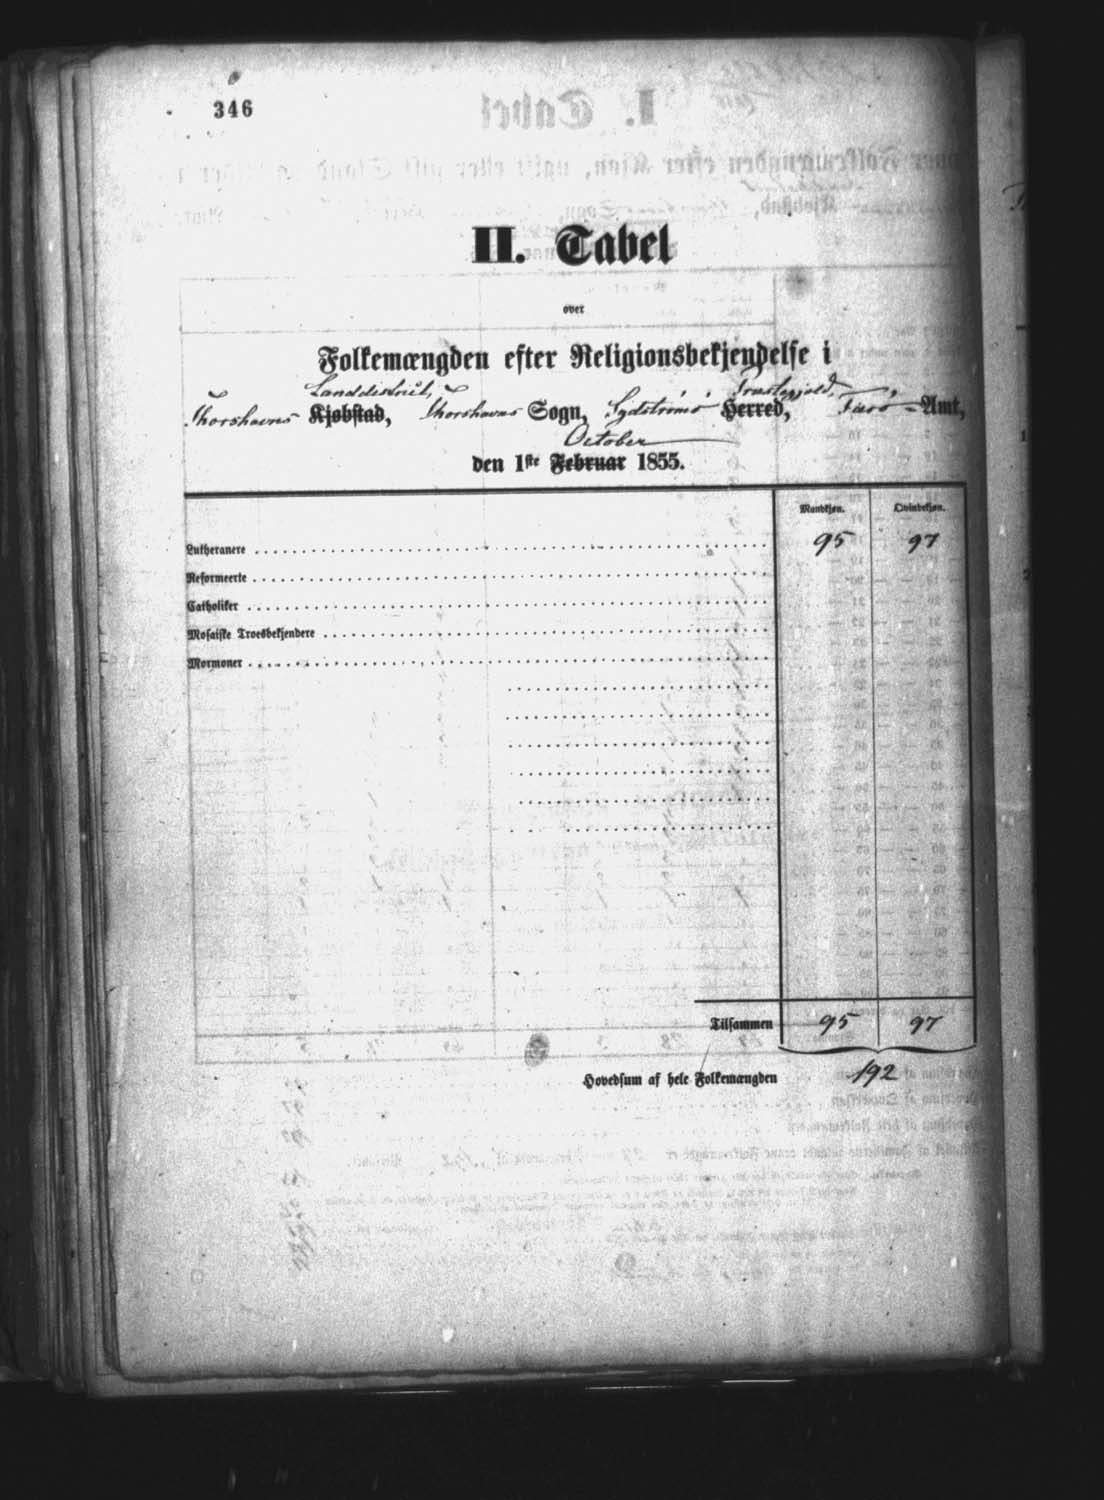 346
II. Tabel
over
Folkemængden efter Religionsbekjendelse i
Landdistrict, Præstegjeld,
Thorshavns Kjøbstad, Thorshavns Sogn, Sydstrømø Herred, Færø Amt,
October
den 1ste Februar 1855.
Mandkjøn. Qvindekjøn.
Lutheranere 95 97
Reformeerte
Catholiker
Mosaiske Troesbekjendere
Mormoner
Tilsammen 95 97
Hovedsum af hele Folkemængden 192